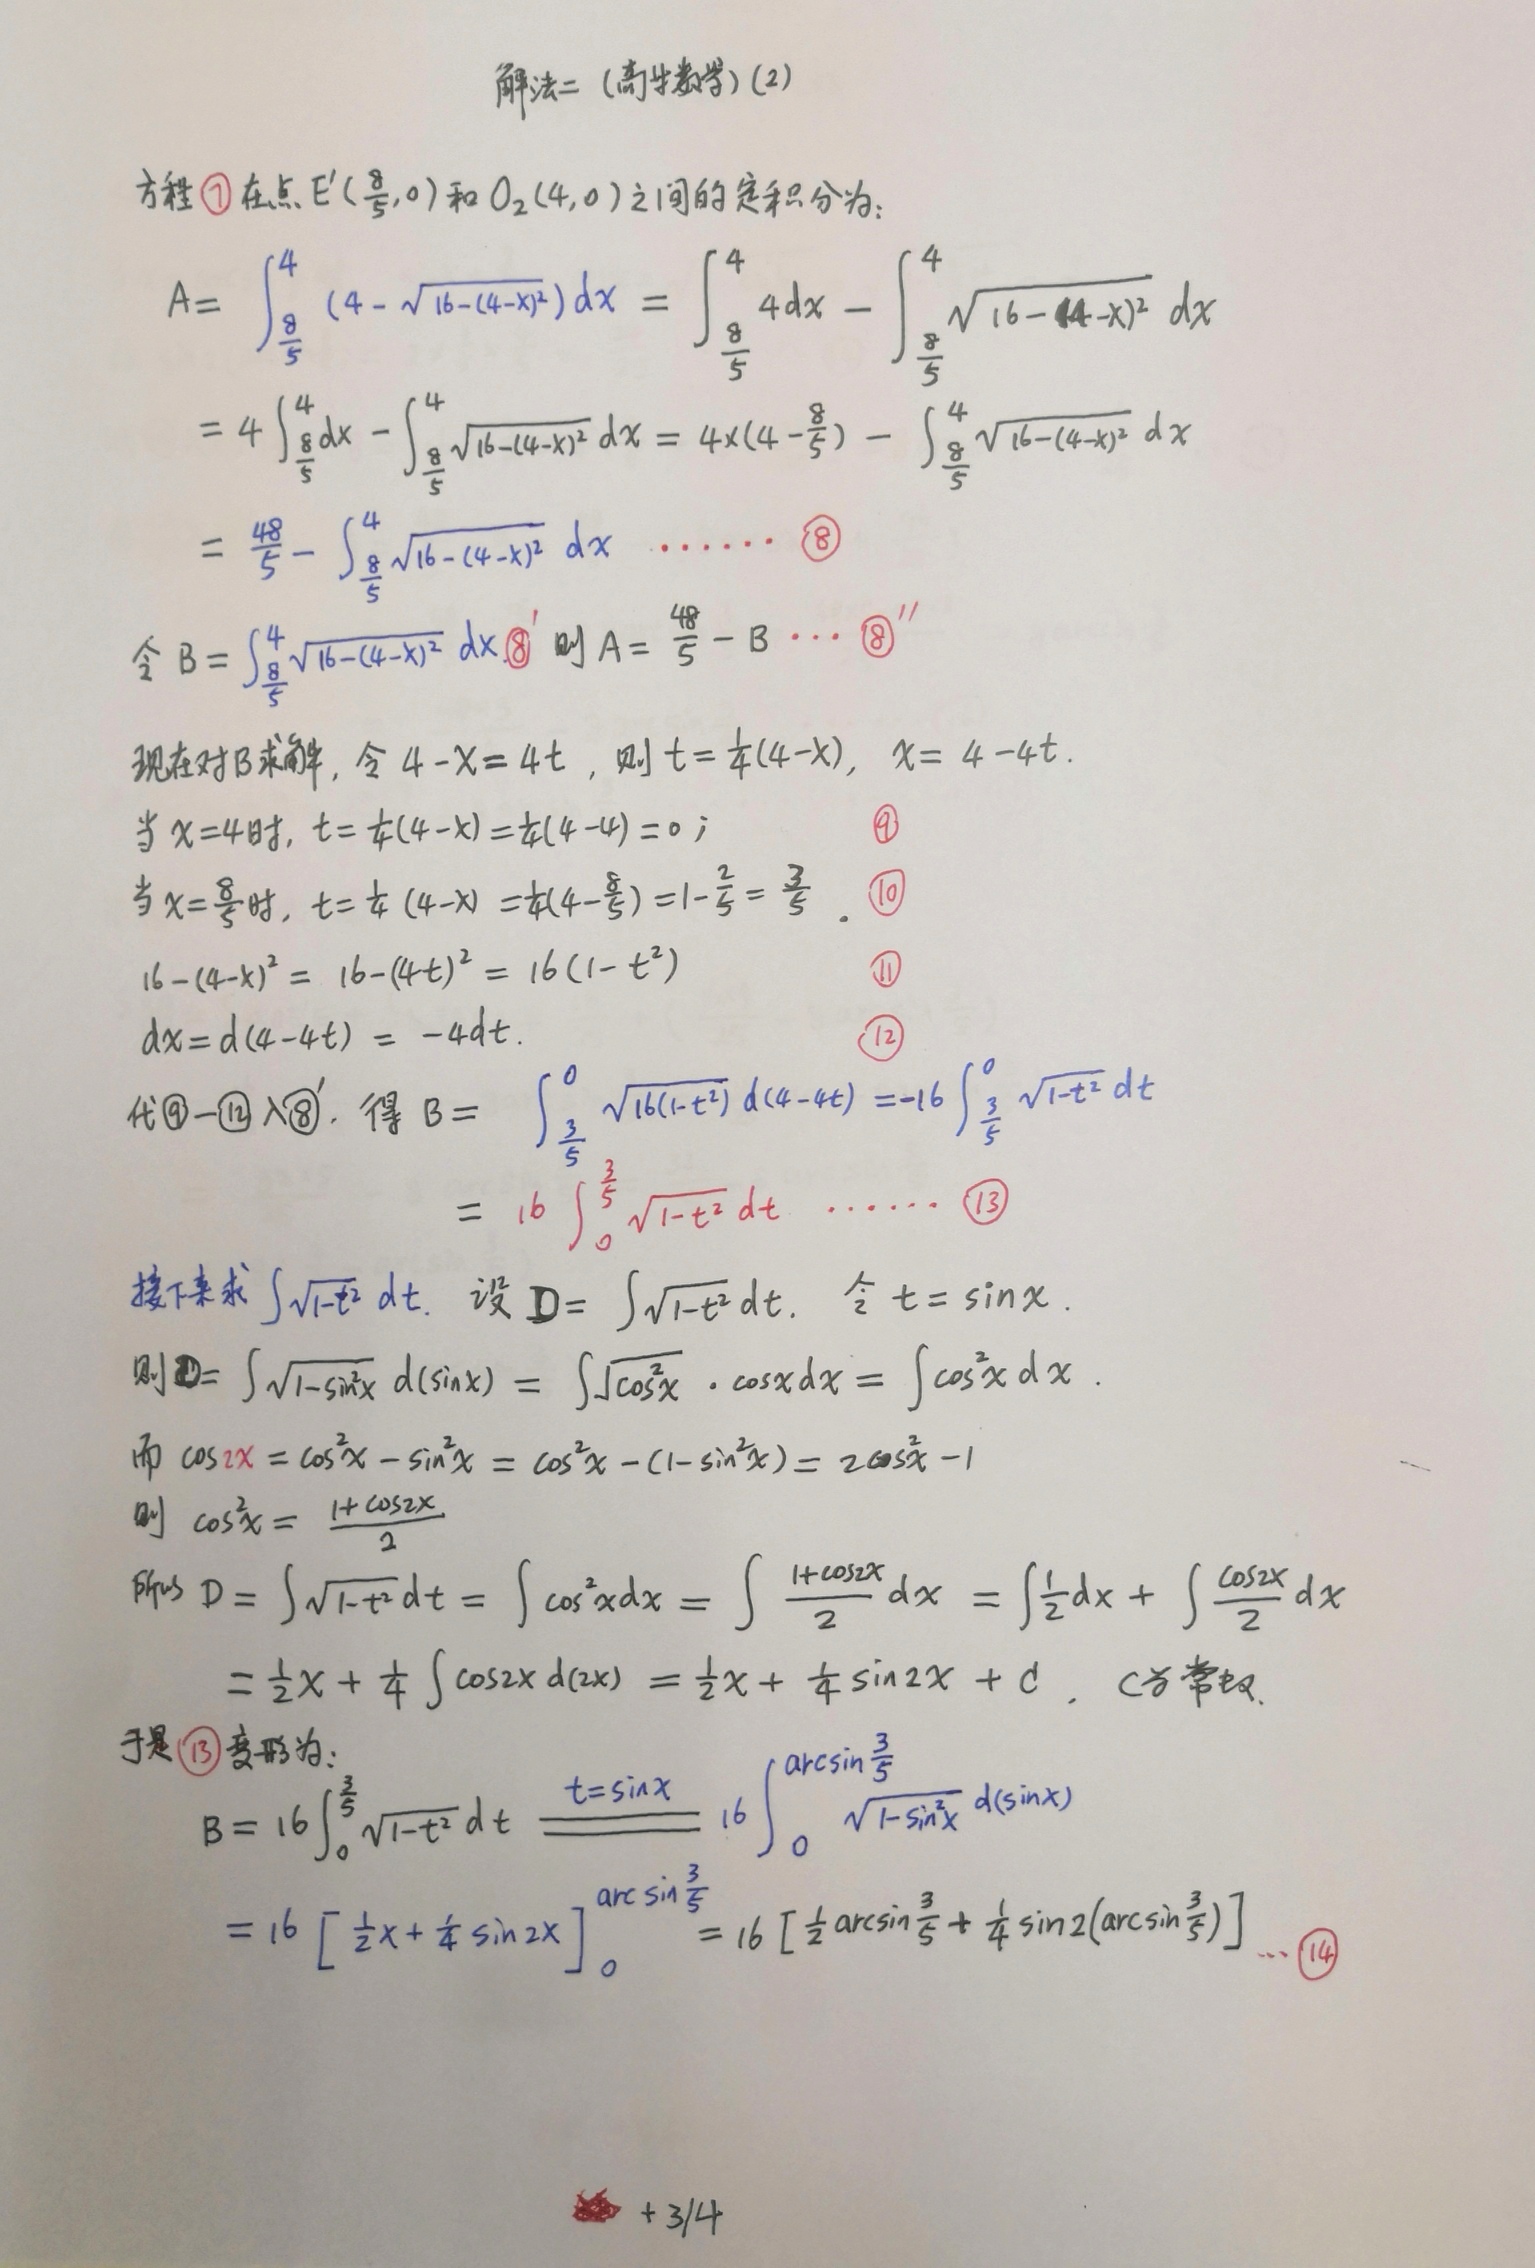 解法二（高等数学）(2)
方程⑦在点E'(8/5,0)和O₂(4,0)之间的定积分为:
A= ∫_{8/5}^{4} (4-√(16-(4-x)²))dx = ∫_{8/5}^{4} 4dx - ∫_{8/5}^{4} √(16-(4-x)²) dx
= 4∫_{8/5}^{4} dx - ∫_{8/5}^{4} √(16-(4-x)²) dx = 4×(4-8/5) - ∫_{8/5}^{4} √(16-(4-x)²) dx
= 48/5 - ∫_{8/5}^{4} √(16-(4-x)²) dx ······ ⑧
令 B= ∫_{8/5}^{4} √(16-(4-x)²) dx.⑧' 则 A= 48/5 - B ··· ⑧''
现在对B求解, 令 4-x=4t, 则 t=1/4(4-x), x= 4-4t.
当 x=4时, t=1/4(4-x)=1/4(4-4)=0; ⑨
当 x=8/5时, t=1/4(4-x)=1/4(4-8/5)=1-2/5=3/5. ⑩
16-(4-x)² = 16-(4t)² = 16(1-t²) ⑪
dx=d(4-4t) = -4dt. ⑫
代⑨-⑫入⑧'. 得 B= ∫_{3/5}^{0} √(16(1-t²)) d(4-4t) =-16 ∫_{3/5}^{0} √(1-t²) dt
= 16 ∫_{0}^{3/5} √(1-t²) dt ······ ⑬
接下来求 ∫√(1-t²) dt. 设 D= ∫√(1-t²) dt. 令 t=sinx.
则D= ∫√(1-sin²x) d(sinx) = ∫√(cos²x) · cosxdx = ∫cos²x dx.
而 cos2x = cos²x - sin²x = cos²x -(1-sin²x)= 2cos²x -1
则 cos²x = (1+cos2x)/2
所以 D= ∫√(1-t²) dt = ∫cos²xdx = ∫ (1+cos2x)/2 dx = ∫1/2 dx + ∫ cos2x/2 dx
= 1/2 x + 1/4 ∫cos2x d(2x) = 1/2 x + 1/4 sin2x + C, C为常数.
于是⑬变形为:
B= 16∫_{0}^{3/5} √(1-t²) dt ==t=sinx== 16∫_{0}^{arcsin 3/5} √(1-sin²x) d(sinx)
= 16 [1/2 x + 1/4 sin2x]_{0}^{arcsin 3/5} = 16 [1/2 arcsin 3/5 + 1/4 sin2(arcsin 3/5)] ··· ⑭
+ 3/4